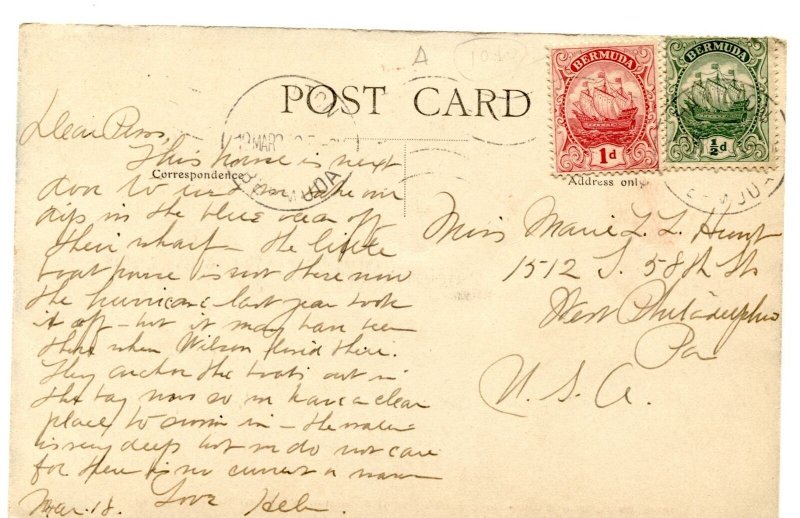 POST CARD
BERMUDA
1d
BERMUDA
½d
Correspondence
Address only
Dear
This house is next
door to us & we take our
dips in the blue ocean off
their wharf – the little
boat house is not there now
the hurricane last year took
it off – but it may have been
there when Wilson lived there.
They anchor the boats out in
the bay now so we have a clean
place to swim in – the water
is very deep but we do not care
for there is no current a
Mar. 18. Love Helen
Miss Marie L. L. Hunt
1512 S. 58th St
West Philadelphia
Pa
U. S. A.